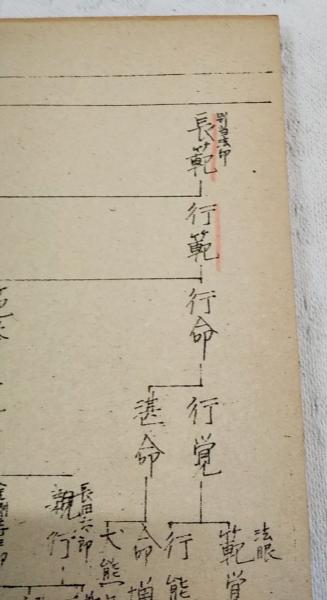 別当法印
長範
行範
行命
行覚
湛命
法眼
範覚
行能
命増
犬熊
長田六郎
親行